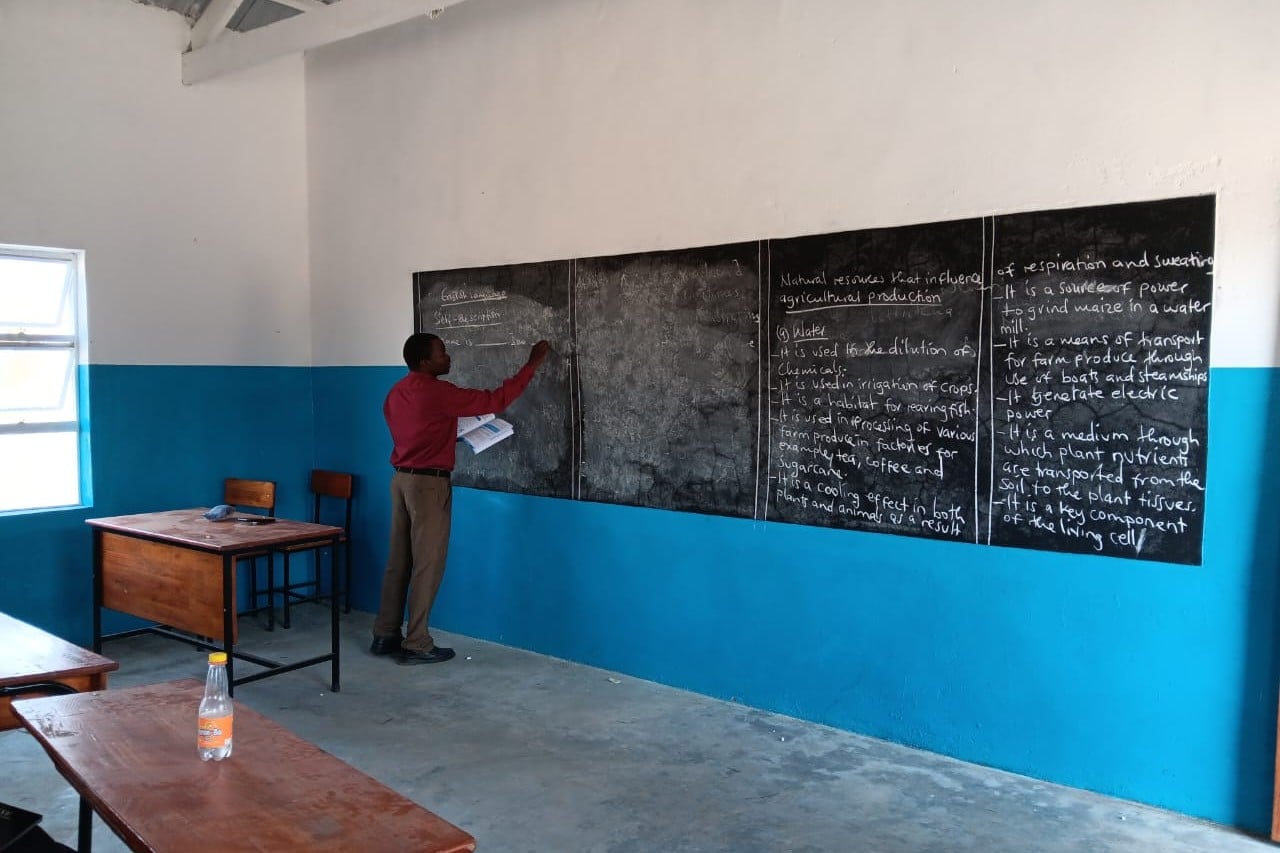 English Language
Self-description
name is
Natural resources that influence
agricultural production
(a) Water
- It is used in the dilution of
Chemicals.
- It is used in irrigation of crops.
- It is a habitat for rearing fish.
- It is used in processing of various
farm produce in factories for
example, tea, coffee and
sugarcane.
- It is a cooling effect in both
plants and animals as a result
of respiration and sweating
- It is a source of power
to grind maize in a water
mill.
- It is a means of transport
for farm produce through
use of boats and steamships
- It generate electric
power
- It is a medium through
which plant nutrients
are transported from the
soil to the plant tissues.
- It is a key component
of the living cell